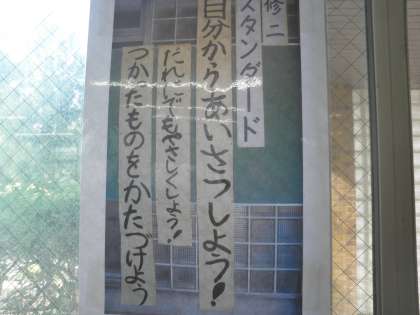 修二
スタンダード
自分からあいさつしよう!
だれにでもやさしくしよう!
つかったものをかたづけよう